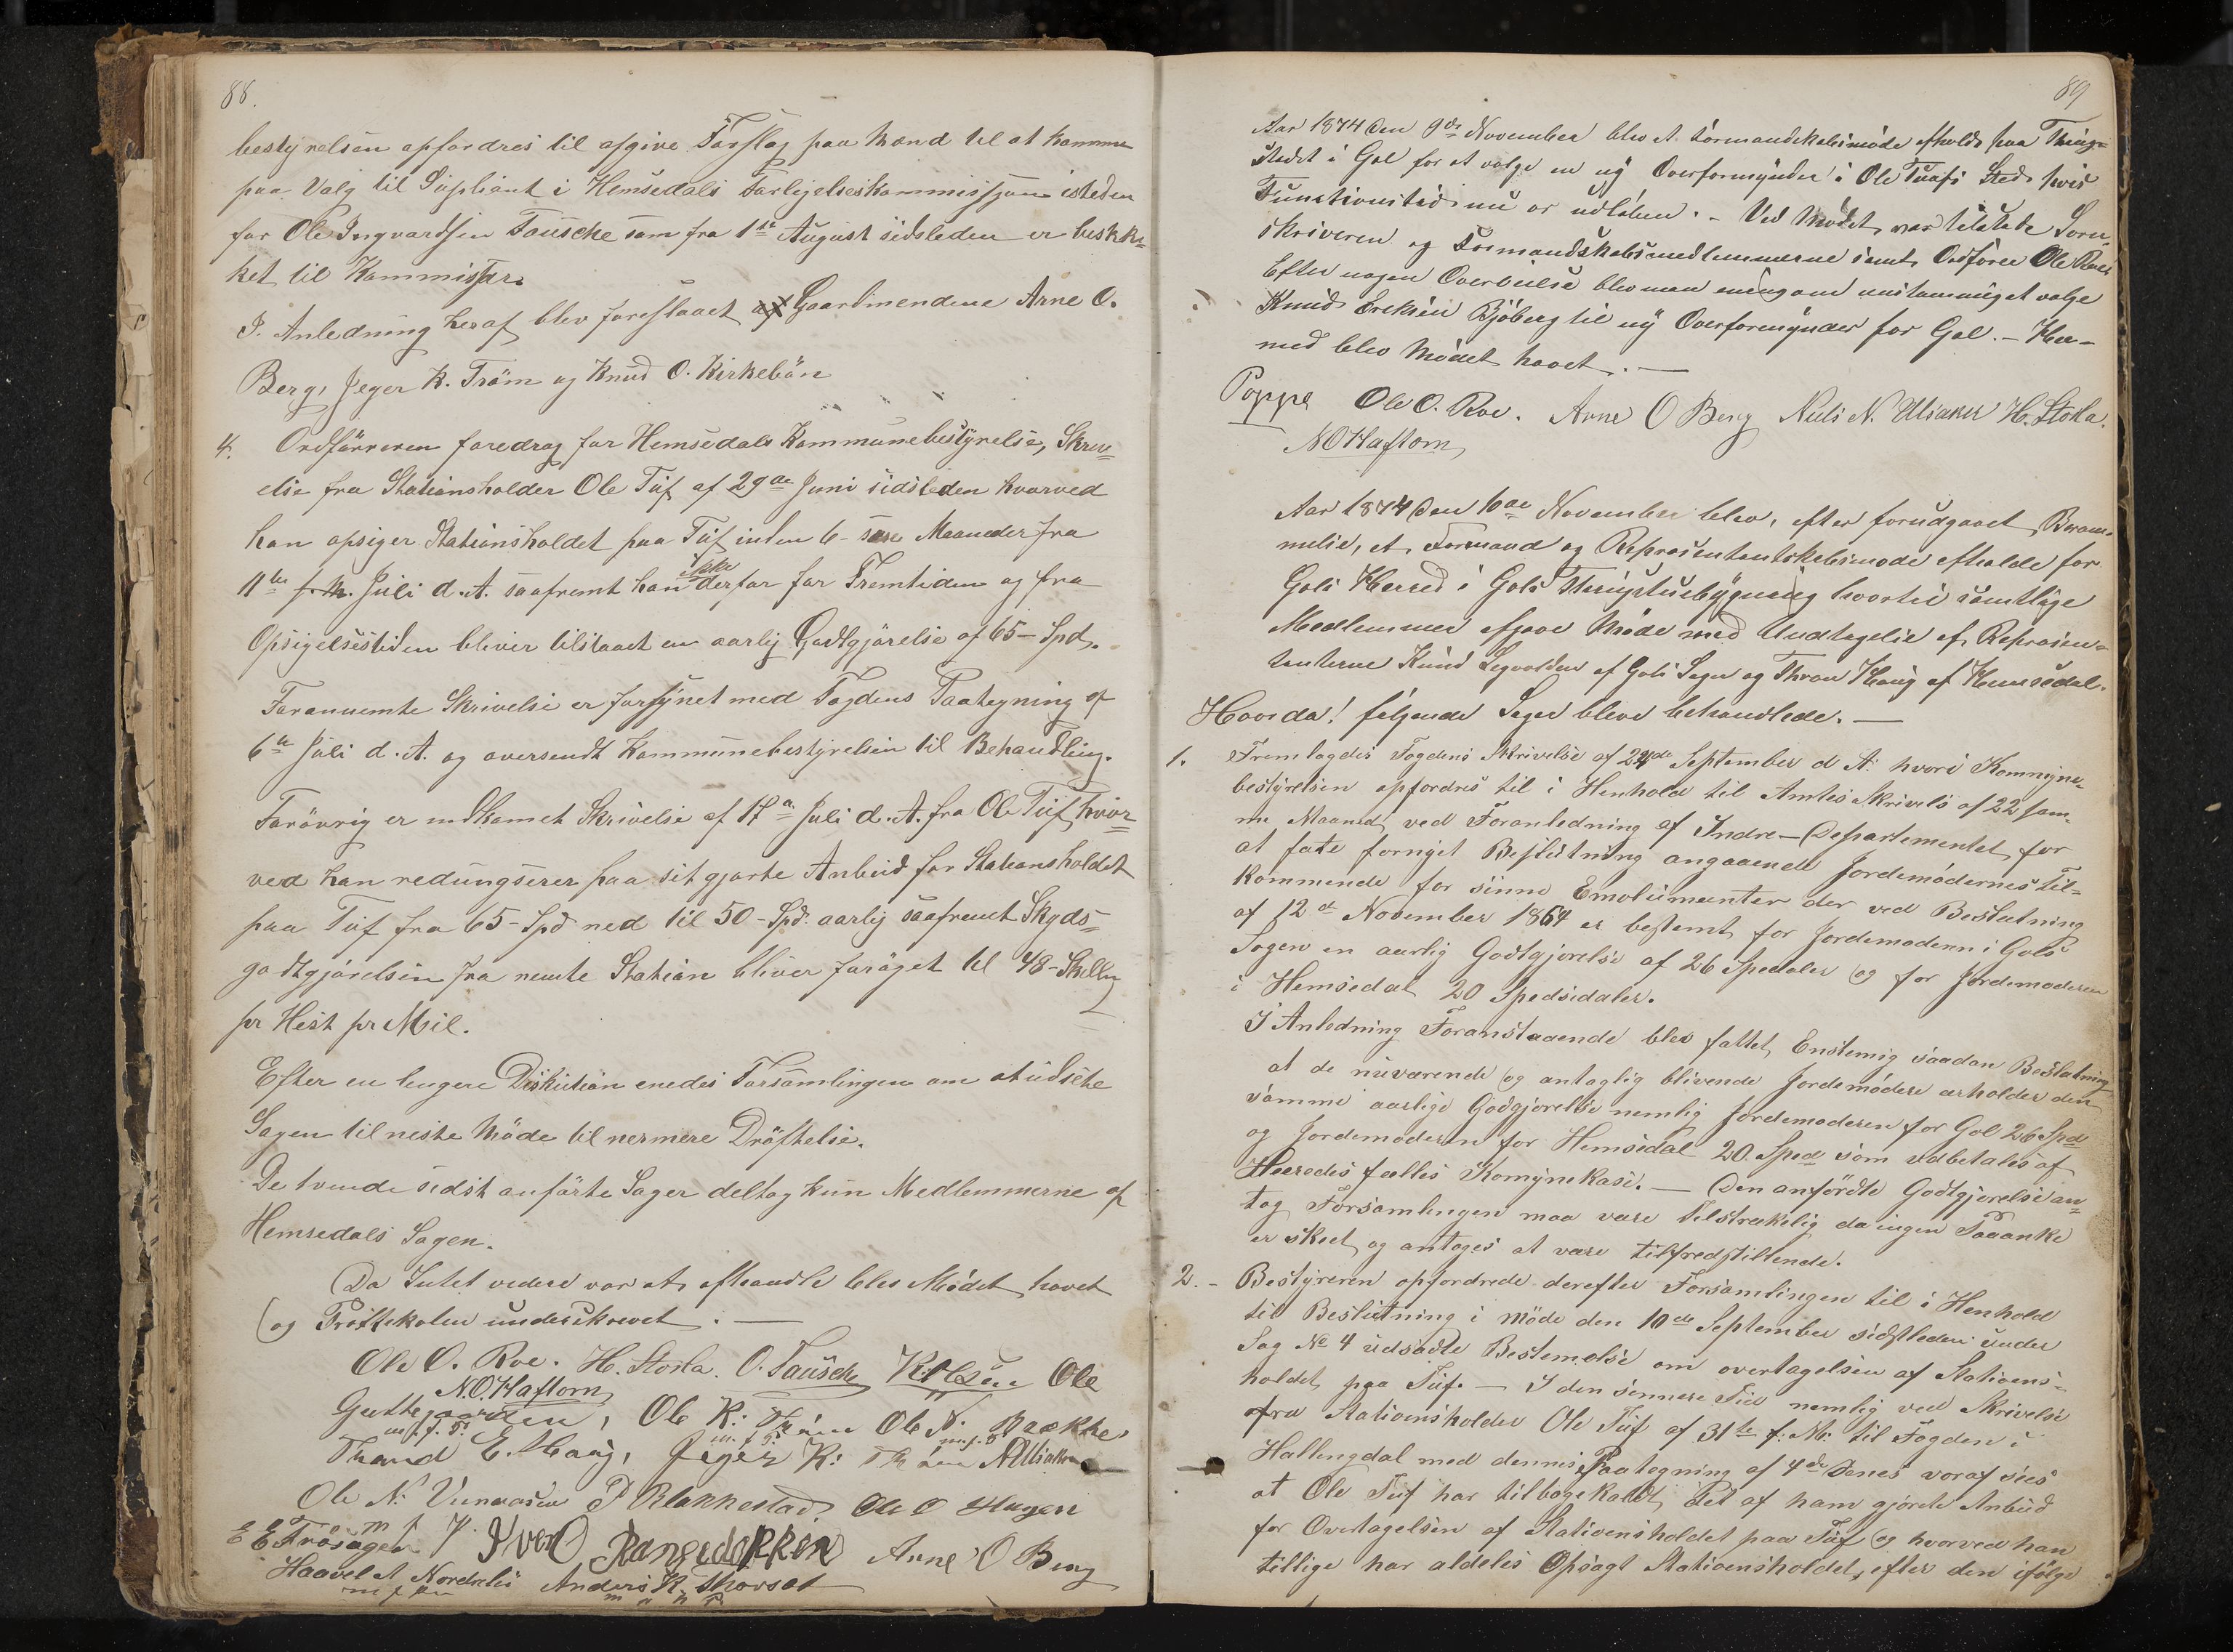 88.
bestyrelsen opfordres til afgive Forslag paa Mænd til at komme
paa Valg til Supliant i Hemsedals Forligelseskommissjon isteden
for Ole Ingvardsen Fausche som fra 1ste August sidsleden er beskik-
ket til Kommissær.
I Anledning heraf blev foreslaaet af Gaardmendene Arne O.
Berg, Jeger K. Tröm og Knud O. Kirkebön
4. Ordförreren foredrog for Hemsedals Kommunebestyrelse, Skriv-
else fra Stationsholder Ole Tuf af 29de Juni sidsleden hvorved
han opsiger Stationsholdet paa Tuf inden 6- sex Maaneder fra
11te f. M. Juli d. A. saafremt han ikke derfor for Fremtiden og fra
Opsigelsestiden bliver tilstaaet en aarlig Godtgjörelse af 65- Spd.
Forannemte Skrivelse er forsynet med Fogdens Paategning af
6te Juli d. A. og oversendt Kommunebestyrelsen til Behandling.
Forövrig er indkomet Skrivelse af 17de Juli d. A. fra Ole Tuf, hvor-
ved han redungserer paa sit gjorte Anbud for Stationsholdet
paa Tuf fra 65- Spd ned til 50- Spd. aarlig saafremt Skyds-
godtgjörelsen fra nemte Station bliver foröget til 48- Skelling
pr Hest pr Mil.
Efter en lengere Diskution enedes Forsamlingen om at udsette
Sagen til neste Möde til nermere Dröftelse.
De tvende sidst anförte Sager deltog kun Medlemmerne af
Hemsedals Sogn.
Da Intet videre var at afhandle blev Mødet hævet
og Prottekolen underskrevet. —
Ole O. Roe. H. Storla. O. Fausche K. Olsen Ole
N.O. Haftorn
Guttegaarden, Ole K: Tröm Ole N. Brække
Thrond E. Haug, Jeger K: Tröm N Ulsaker
Ole N. P Blakkestad, Ole O Haugen
E E Frøsager Iver O Rangedokken Arne O Berg
Haavel A Nordalii Anders K. Thorset
89
Aar 1874 den 9de November blev et Formandskabsmöde afholdt paa Thing-
stedet i Gol for at vælge en ny Overformynder i Ole Tuufs Sted, hvis
Functionstid nu er udløben. - Ved Mødet var tilstede Soren-
skriveren og Formandskabsmedlemmerne samt Ordforer Ole Roe.
Efter nogen Overveielse blev man enig om enstemmigt vælge
Knud Eriksen Bjöberg til ny Overformynder for Gol. - Her-
med blev Mödet hævet. —
Poppe Ole O. Roe. Arne O Berg Niels N. Ulsaker H. Storla.
N O Haftorn
Aar 1874 den 16de November blev, efter forudgaaet Beram-
melse, et Formand og Representantskabsmøde afholdt for
Gols Herred i Gols Thingstuebygning hvortil samtlige
Medlemmer afgave Møde med Undtagelse af Represen-
tanterne Knud Segvolden af Gols Sogn og Thron Haug af Hemsedal.
Hvorda! følgende Sager bleve behandlede. —
1. Fremlagdes Fogdens Skrivelse af 24de September d A: hvori Kommyne-
bestyrelsen opfordres til i Henhold til Amtes Skrivels af 22 sam-
me Maaned, ved Foranledning af Indre- Departementet, for
at fate fornyet Beslutning angaaende Jordemødernes Til-
kommende for sinne Emolumenter der ved Beslutning
af 12te November 1864 er bestemt for Jordemoderen i Gols
Sogen en aarlig Godtgjørelse af 26 Spedaler og for Jordemoderen
i Hemsedal 20 Spedsidaler.
I Anledning Foranstaaende blev fattet Enstemig saadan Beslutning
at de nuværende og antaglig blivende Jordemødere erholder den
samme aarlige Godgjørelse nemlig Jordemoderen for Gol 26 Spd
og Jordemoderen for Hemsedal 20. Sped som udbetales af
Herredes fælles Komynekase. — Den anførdte Godtgjørelse an-
tog Forsamlingen maa være tilstrækelig da ingen Paaanke
er skeet, og antages at være tilfredstillende.
2. - Bestyreren opfordrede derefter Forsamlingen til i Henhold
til Beslutning i Møde den 10de September sidstleden under
Sag No 4 udsadte Bestemelse om overtagelsen af Stations-
holdet paa Tuf. — I den sennere Tid nemlig ved Skrivelse
fra Stationsholder Ole Tuf af 31te f: M: til Fogden i
Hallengdal med dennes Paategning af 4de Denes voraf sees
at Ole Tuf har tilbagekaldt det af ham gjorde Anbud
for Overtagelsen af Stationsholdet paa Tuf og hvorved han
tillige har aldeles Opsagt Stationsholdet, efter den ifölge